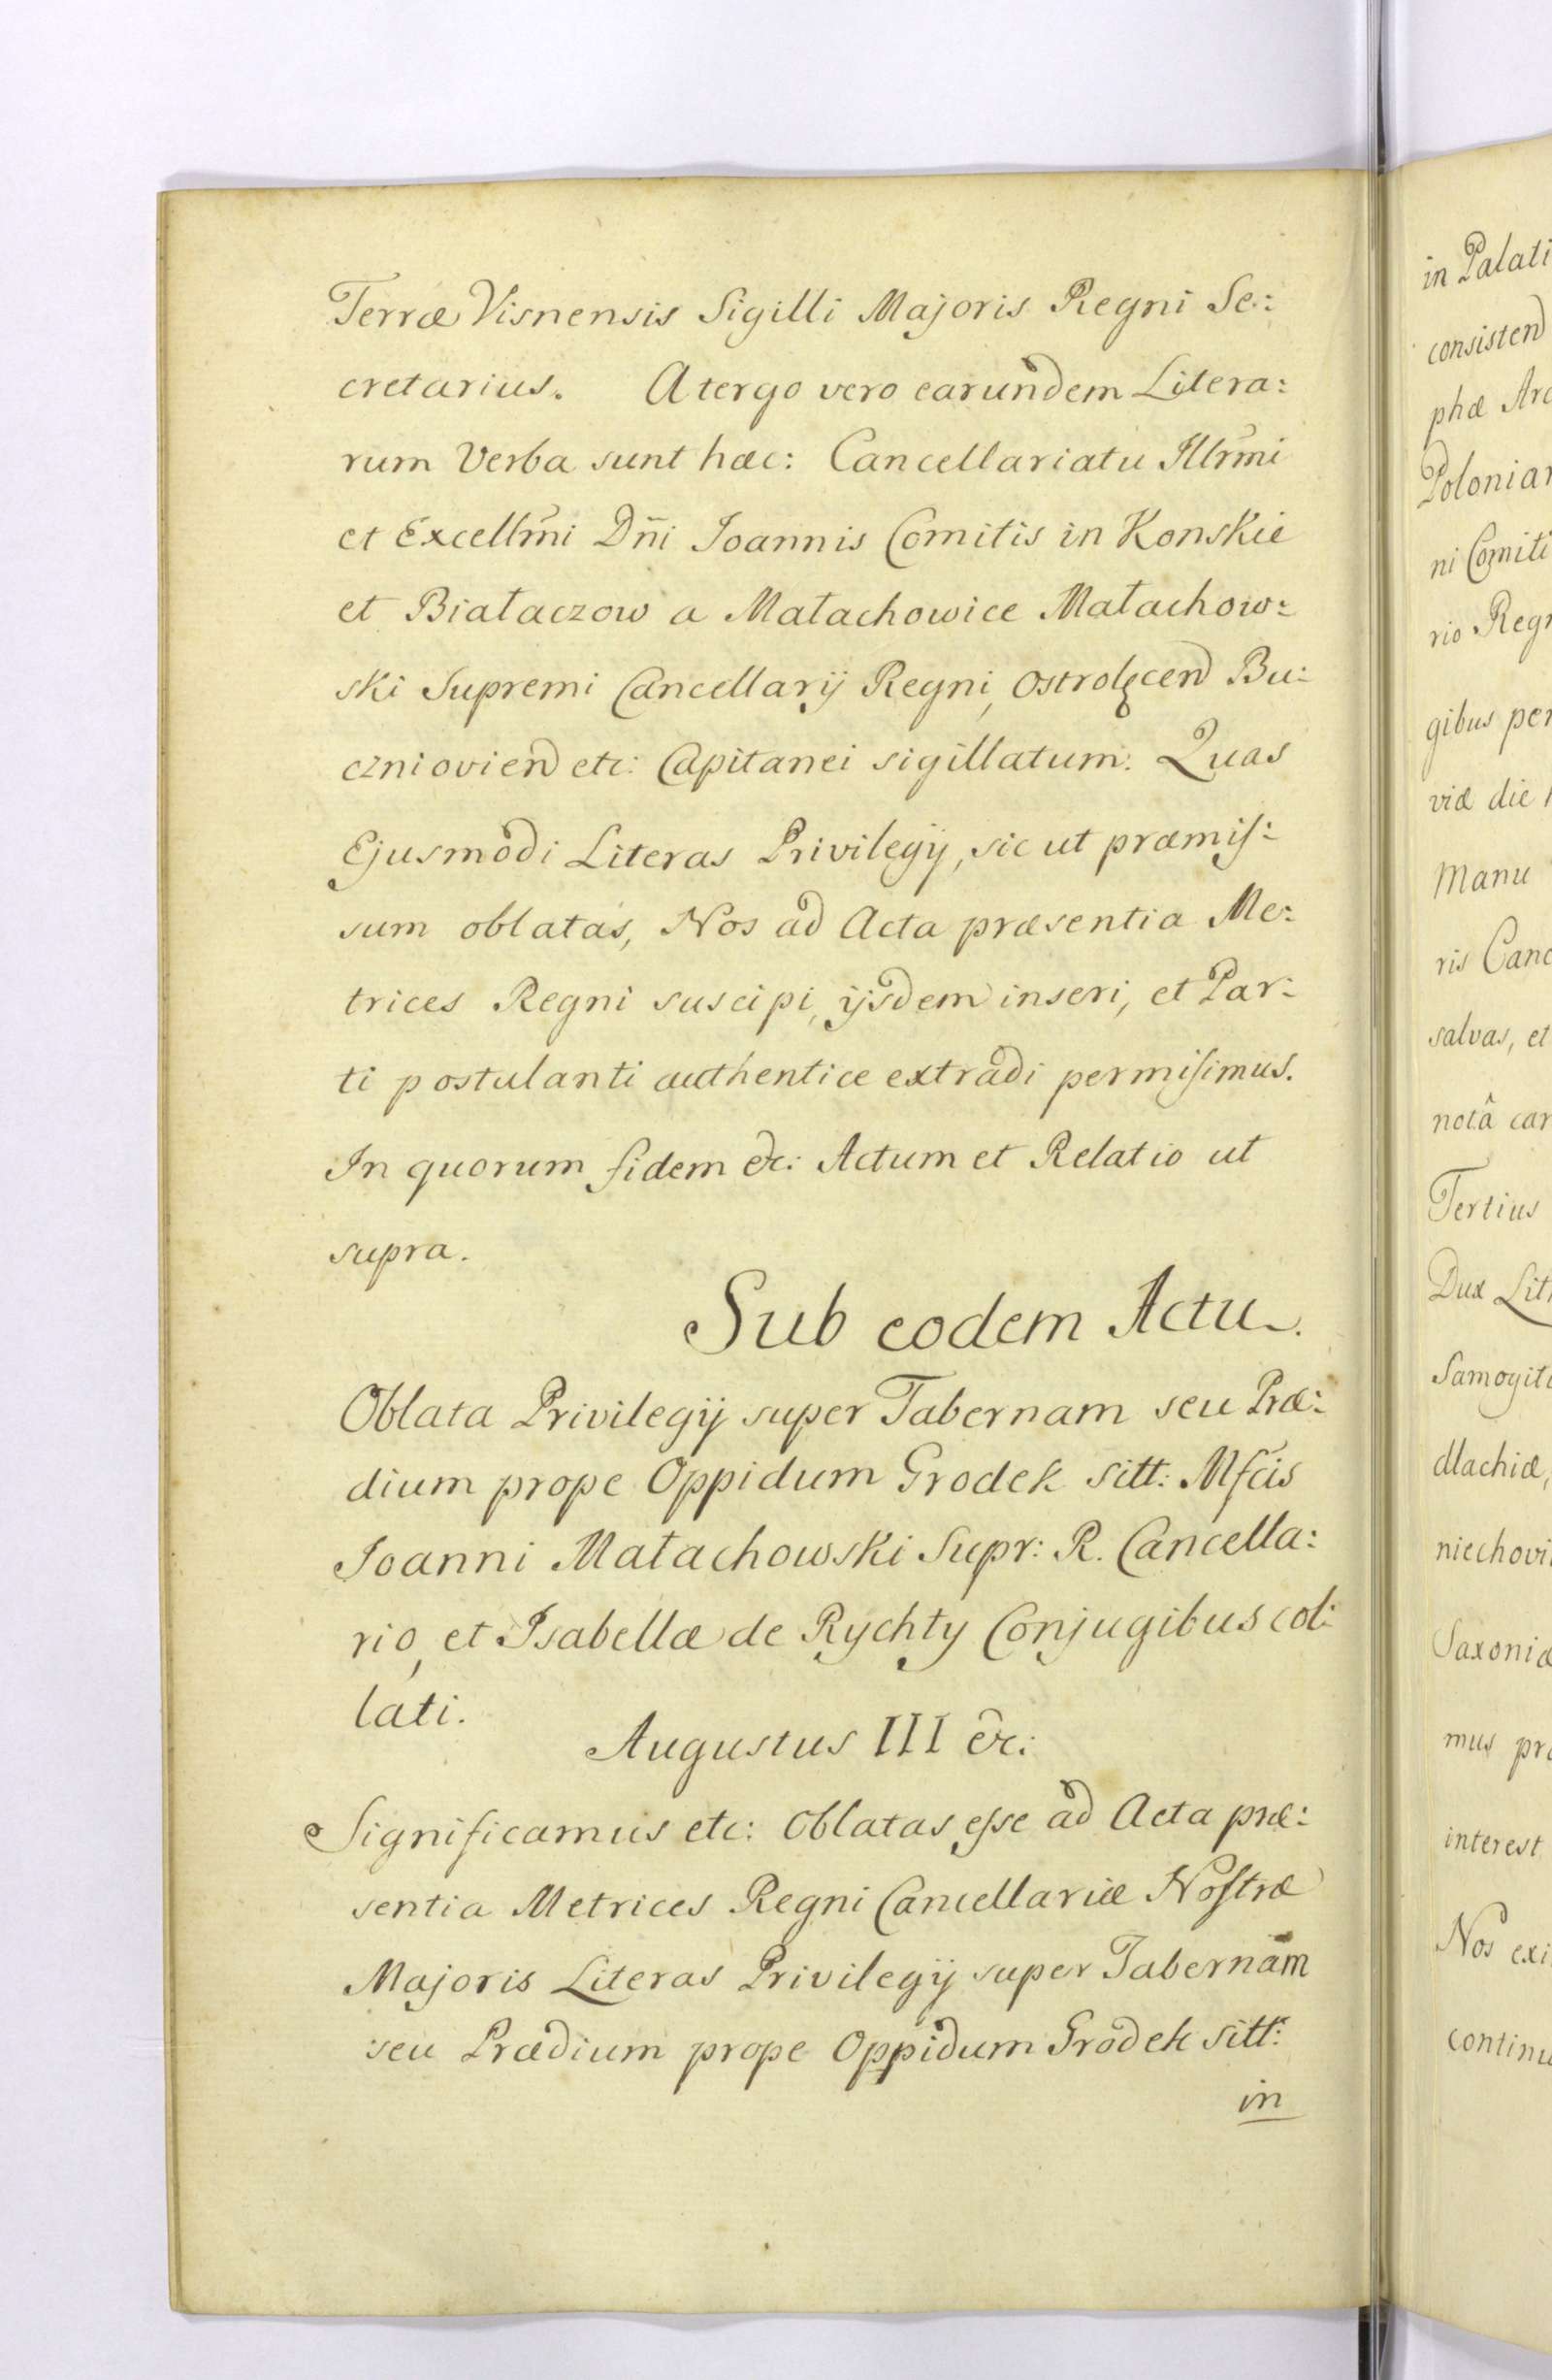 Terræ Visnensis Sigilli Majoris Regni Se:
cretarius. A tergo vero earundem Litera:
rum Verba sunt hæc: Cancellariatu Illrmi
et Excellmi Dñi Joannis Comitis in Konskie
et Białaczow a Małachowice Małachow:
ski Supremi Cancellarij Regni, Ostrołęcen Bu:
czniovien etc: Capitanei sigillatum. Quas
Ejusmodi Literas Privilegij, sic ut præmiſ:
sum oblatas, Nos ad Acta præsentia Me:
trices Regni suscipi, ijsdem inseri, et Par:
ti postulanti authentice extradi permiſimus.
In quorum fidem &c: Actum et Relatio ut
supra.
Sub eodem Actu.
Oblata Privilegij super Tabernam seu Præ:
dium prope Oppidum Grodek sitt: Mfcis
Joanni Małachowski Supr: R. Cancella:
rio, et Isabellæ de Rychty Conjugibus col:
lati.
Augustus III &c:
Significamus etc: Oblatas eſse ad Acta præ:
sentia Metrices Regni Cancellariæ Noſtræ
Majoris Literas Privilegij super Tabernam
seu Prædium prope Oppidum Grodek sitt:
in
in Palati
consisten
phæ Arc
Polonia
ni Comiti
rio Reg
gibus per
viæ die
Manu
ris Canc
salvas, et
notâ car
Tertius
Dux Lit
Samogiti
dlachiæ,
niechovi
Saxoniæ
mus pr
interest
Nos exi
continu